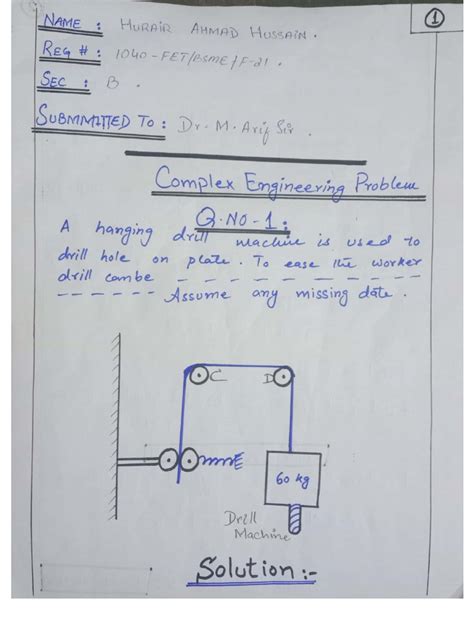 1
NAME : HURAIR AHMAD HUSSAIN.
REG # : 1040-FET/BSME/F-21.
SEC : B.
SUBMMITTED TO : Dr. M. Arif Sir.
Complex Engineering Problem
Q.NO-1:
A hanging drill machine is used to
drill hole on plate. To ease the worker
drill cambe - - - - - - - - - - - -
- - - - - - - Assume any missing date.
C D
E
60 kg
Drill
Machine
Solution:-